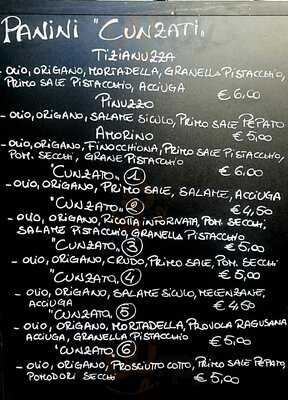 PANINI "CUNZATI"
TIZIANUZZA
- OLIO, ORIGANO, MORTADELLA, GRANELLA PISTACCHIO,
PRIMO SALE PISTACCHIO, ACCIUGA
€ 6,00
PINUZZO
- OLIO, ORIGANO, SALAME SICULO, PRIMO SALE PEPATO
€ 5,00
AMORINO
- OLIO, ORIGANO, FINOCCHIONA, PRIMO SALE PISTACCHIO,
POM. SECCHI, GRANE PISTACCHIO
€ 6,00
"CUNZATO" 1
- OLIO, ORIGANO, PRIMO SALE, SALAME, ACCIUGA
€ 4,50
"CUNZATO" 2
- OLIO, ORIGANO, RICOTTA INFORNATA, POM. SECCHI,
SALAME PISTACCHIO, GRANELLA PISTACCHIO
€ 5,00
"CUNZATO" 3
- OLIO, ORIGANO, CRUDO, PRIMO SALE, POM. SECCHI
€ 5,00
"CUNZATO" 4
- OLIO, ORIGANO, SALAME SICULO, MELENZANE,
ACCIUGA
€ 4,50
"CUNZATO" 5
- OLIO, ORIGANO, MORTADELLA, PROVOLA RAGUSANA
ACCIUGA, GRANELLA PISTACCHIO
€ 5,00
"CUNZATO" 6
- OLIO, ORIGANO, PROSCIUTTO COTTO, PRIMO SALE PEPATO,
POMODORI SECCHI
€ 5,00